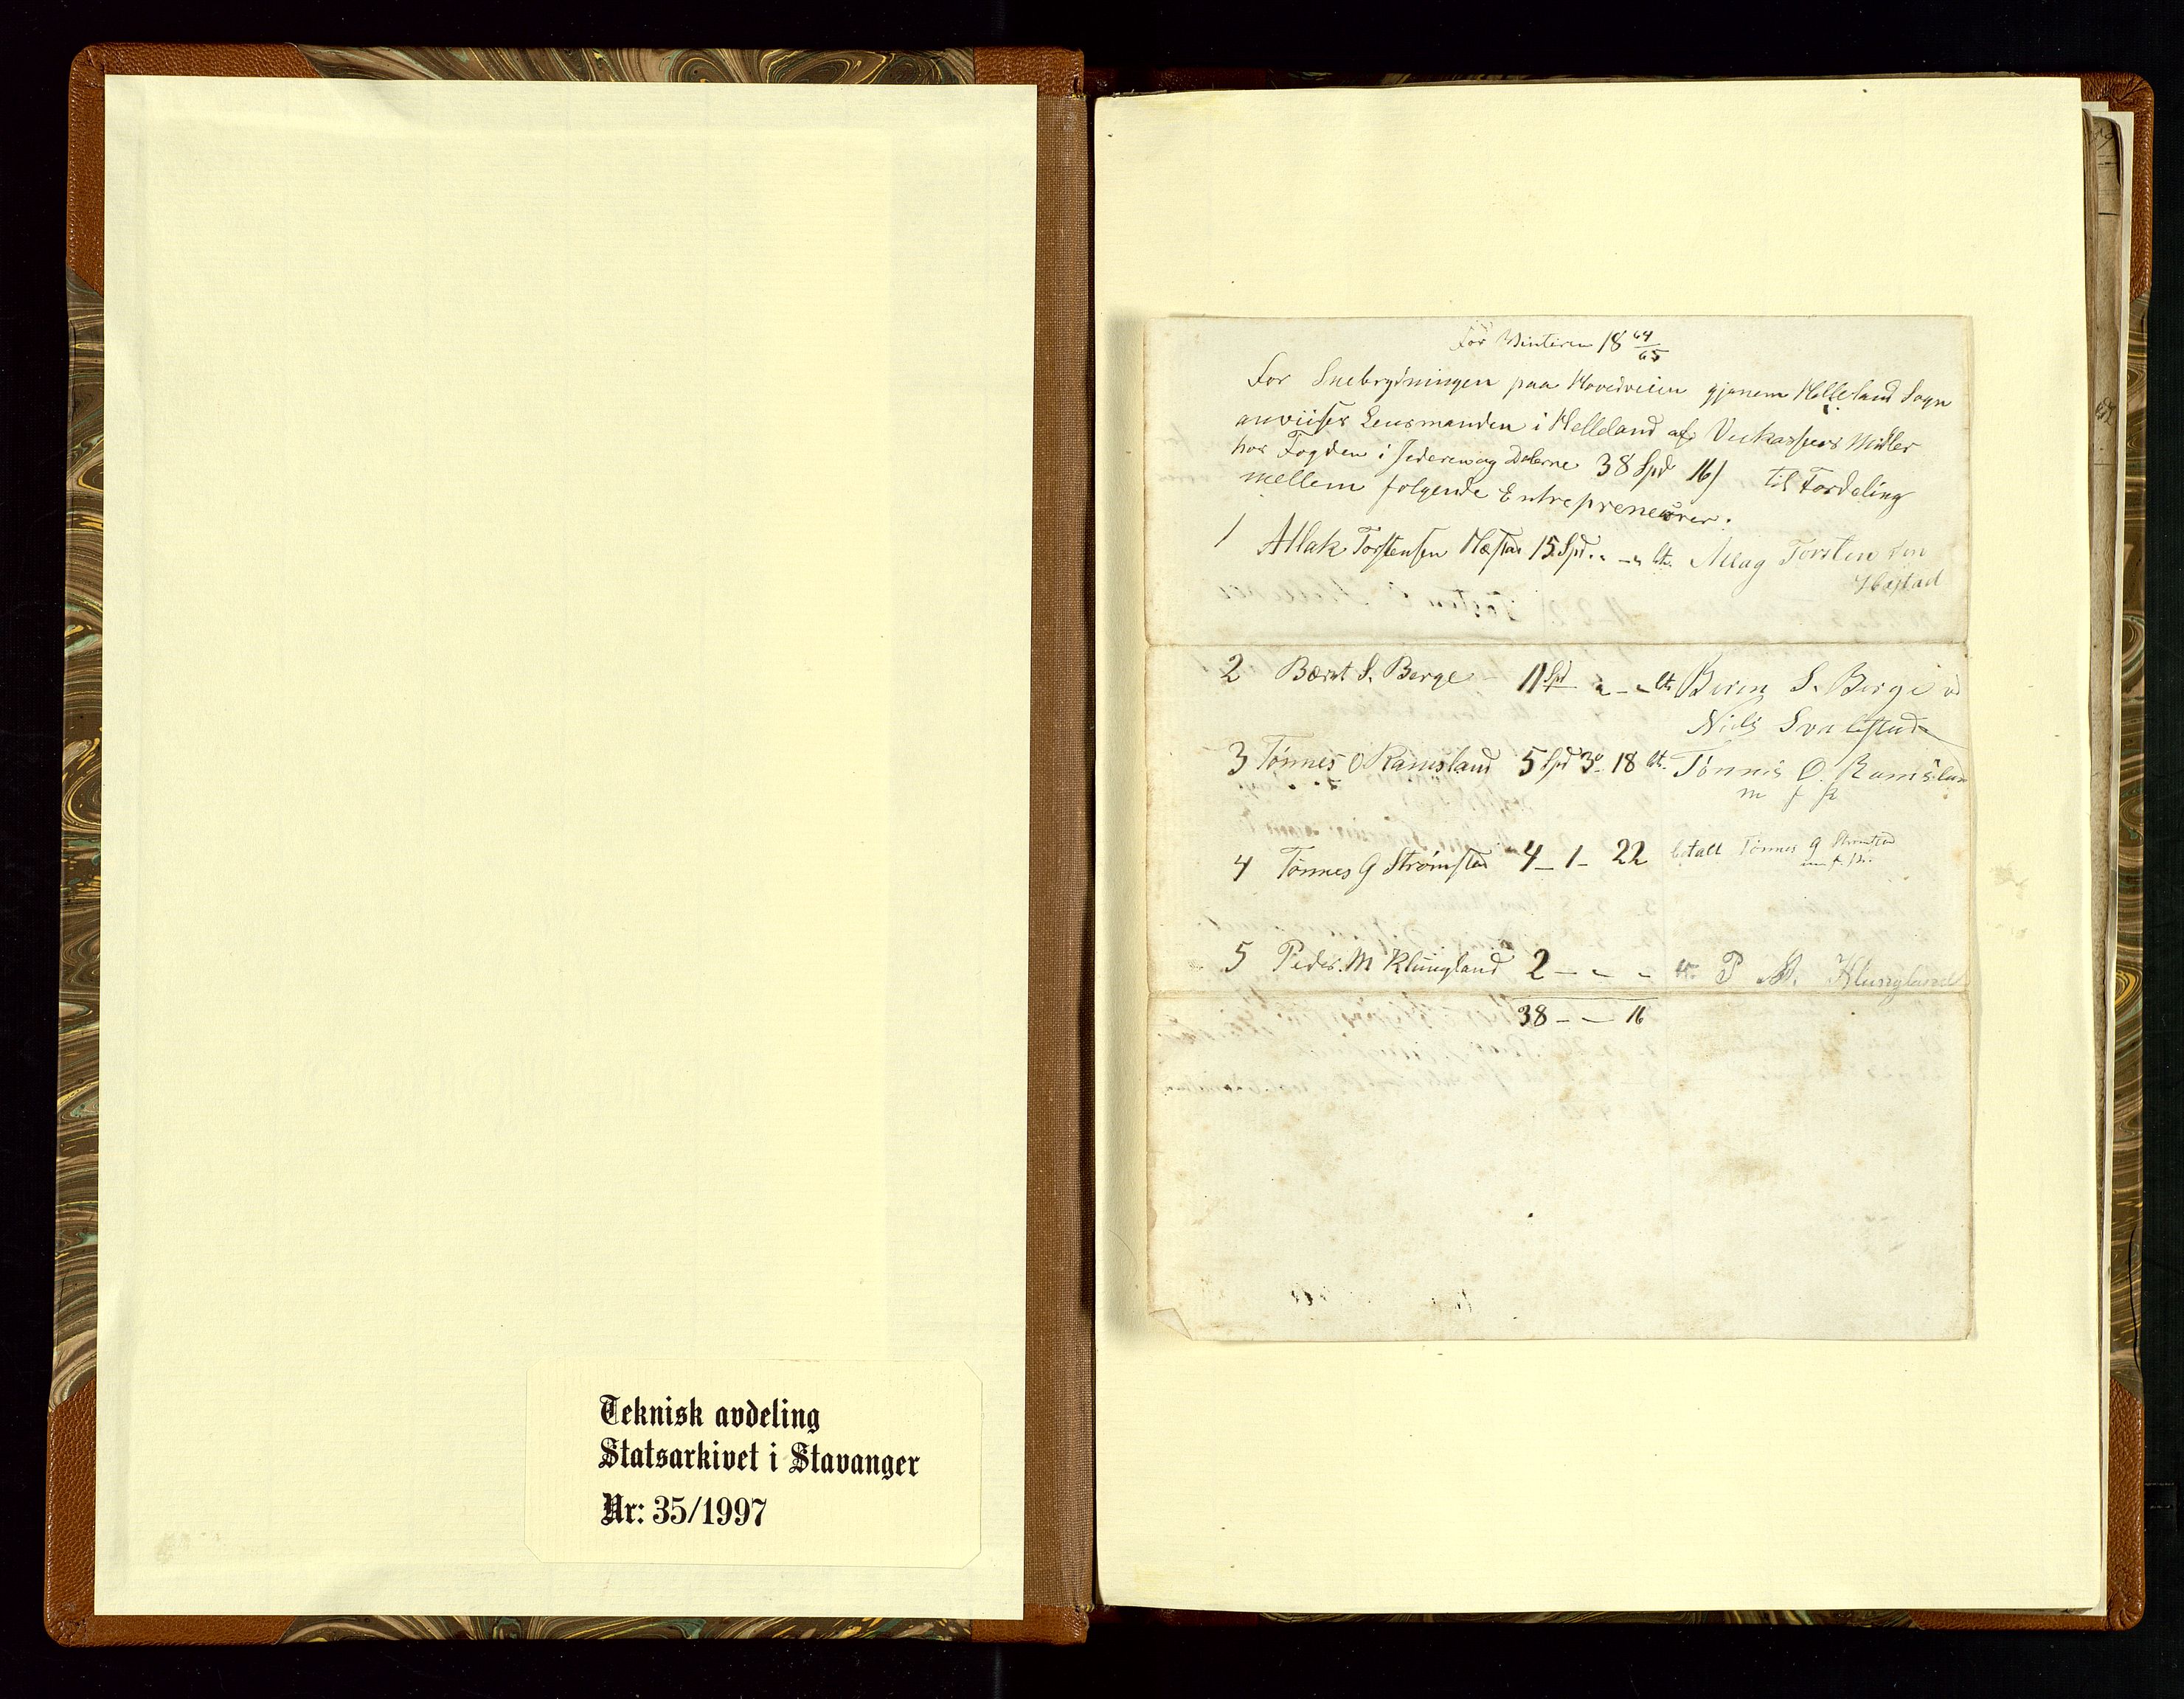 Teknisk avdeling
Statsarkivet i Stavanger
Nr: 35/1997
For Winteren 18 64/65
For Snebrydningen paa Hovedveien gjenem Helleland Sogn
anviises Lensmanden i Helleland af Veikassens Midler
hos Fogden i Jederen og Dalerne 38 Spd 16 ß til Fordeling
mellem følgende Entrepreneurer.
1 Atlak Torstensen Hæstad 15 Spd. " - " bt. Atlag Torsten sen
Hæstad
2 Bærnt S. Berge 11 Spd " - " bt. Beren S. Berge ved
Niels Svalestad
3 Tønnes O Ramsland 5 Spd 3 - 18 bt. Tønnis O. Ramsland
m f p
4 Tønnes G Strømstad 4 - 1 - 22 betalt Tønnes G Strømstad
m. f. p.
5 Peder M Klungland 2 - " - " bt. P M. Klungland
38 - " - 16